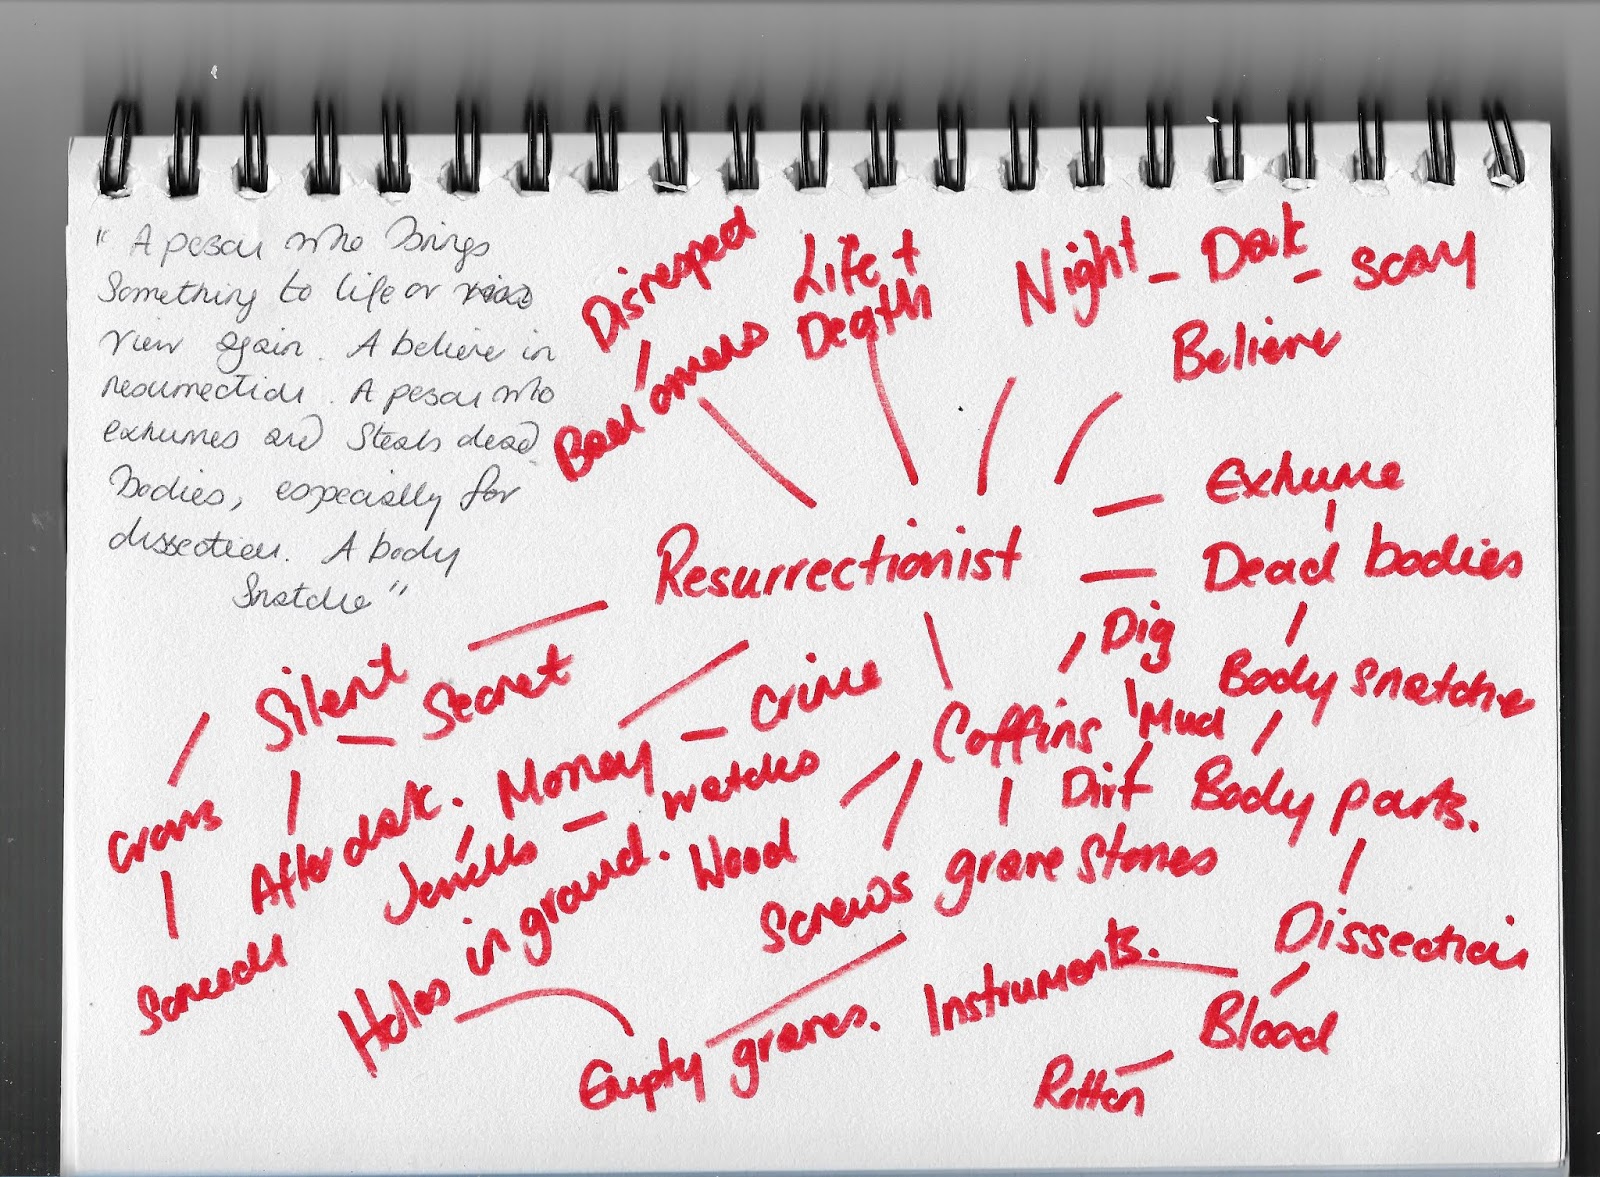 " A person who brings
Something to life or
view again. A believer in
resurrection. A person who
exhumes and Steals dead
bodies, especially for
dissection. A body
Snatcher"
Disrespect
Bad omens
Life +
Death
Night - Dark - Scary
Believer
Exhume
Resurrectionist
Dead bodies
Dig
Body snatcher
Silent
Secret
Crime
Coffins
Mud
Money
Crows
After dark.
Jewells
watches
Wood
Dirt
Body parts.
Holes in ground.
Screws
grave stones
Screech
Dissection
Instruments.
Empty graves.
Blood
Rotten